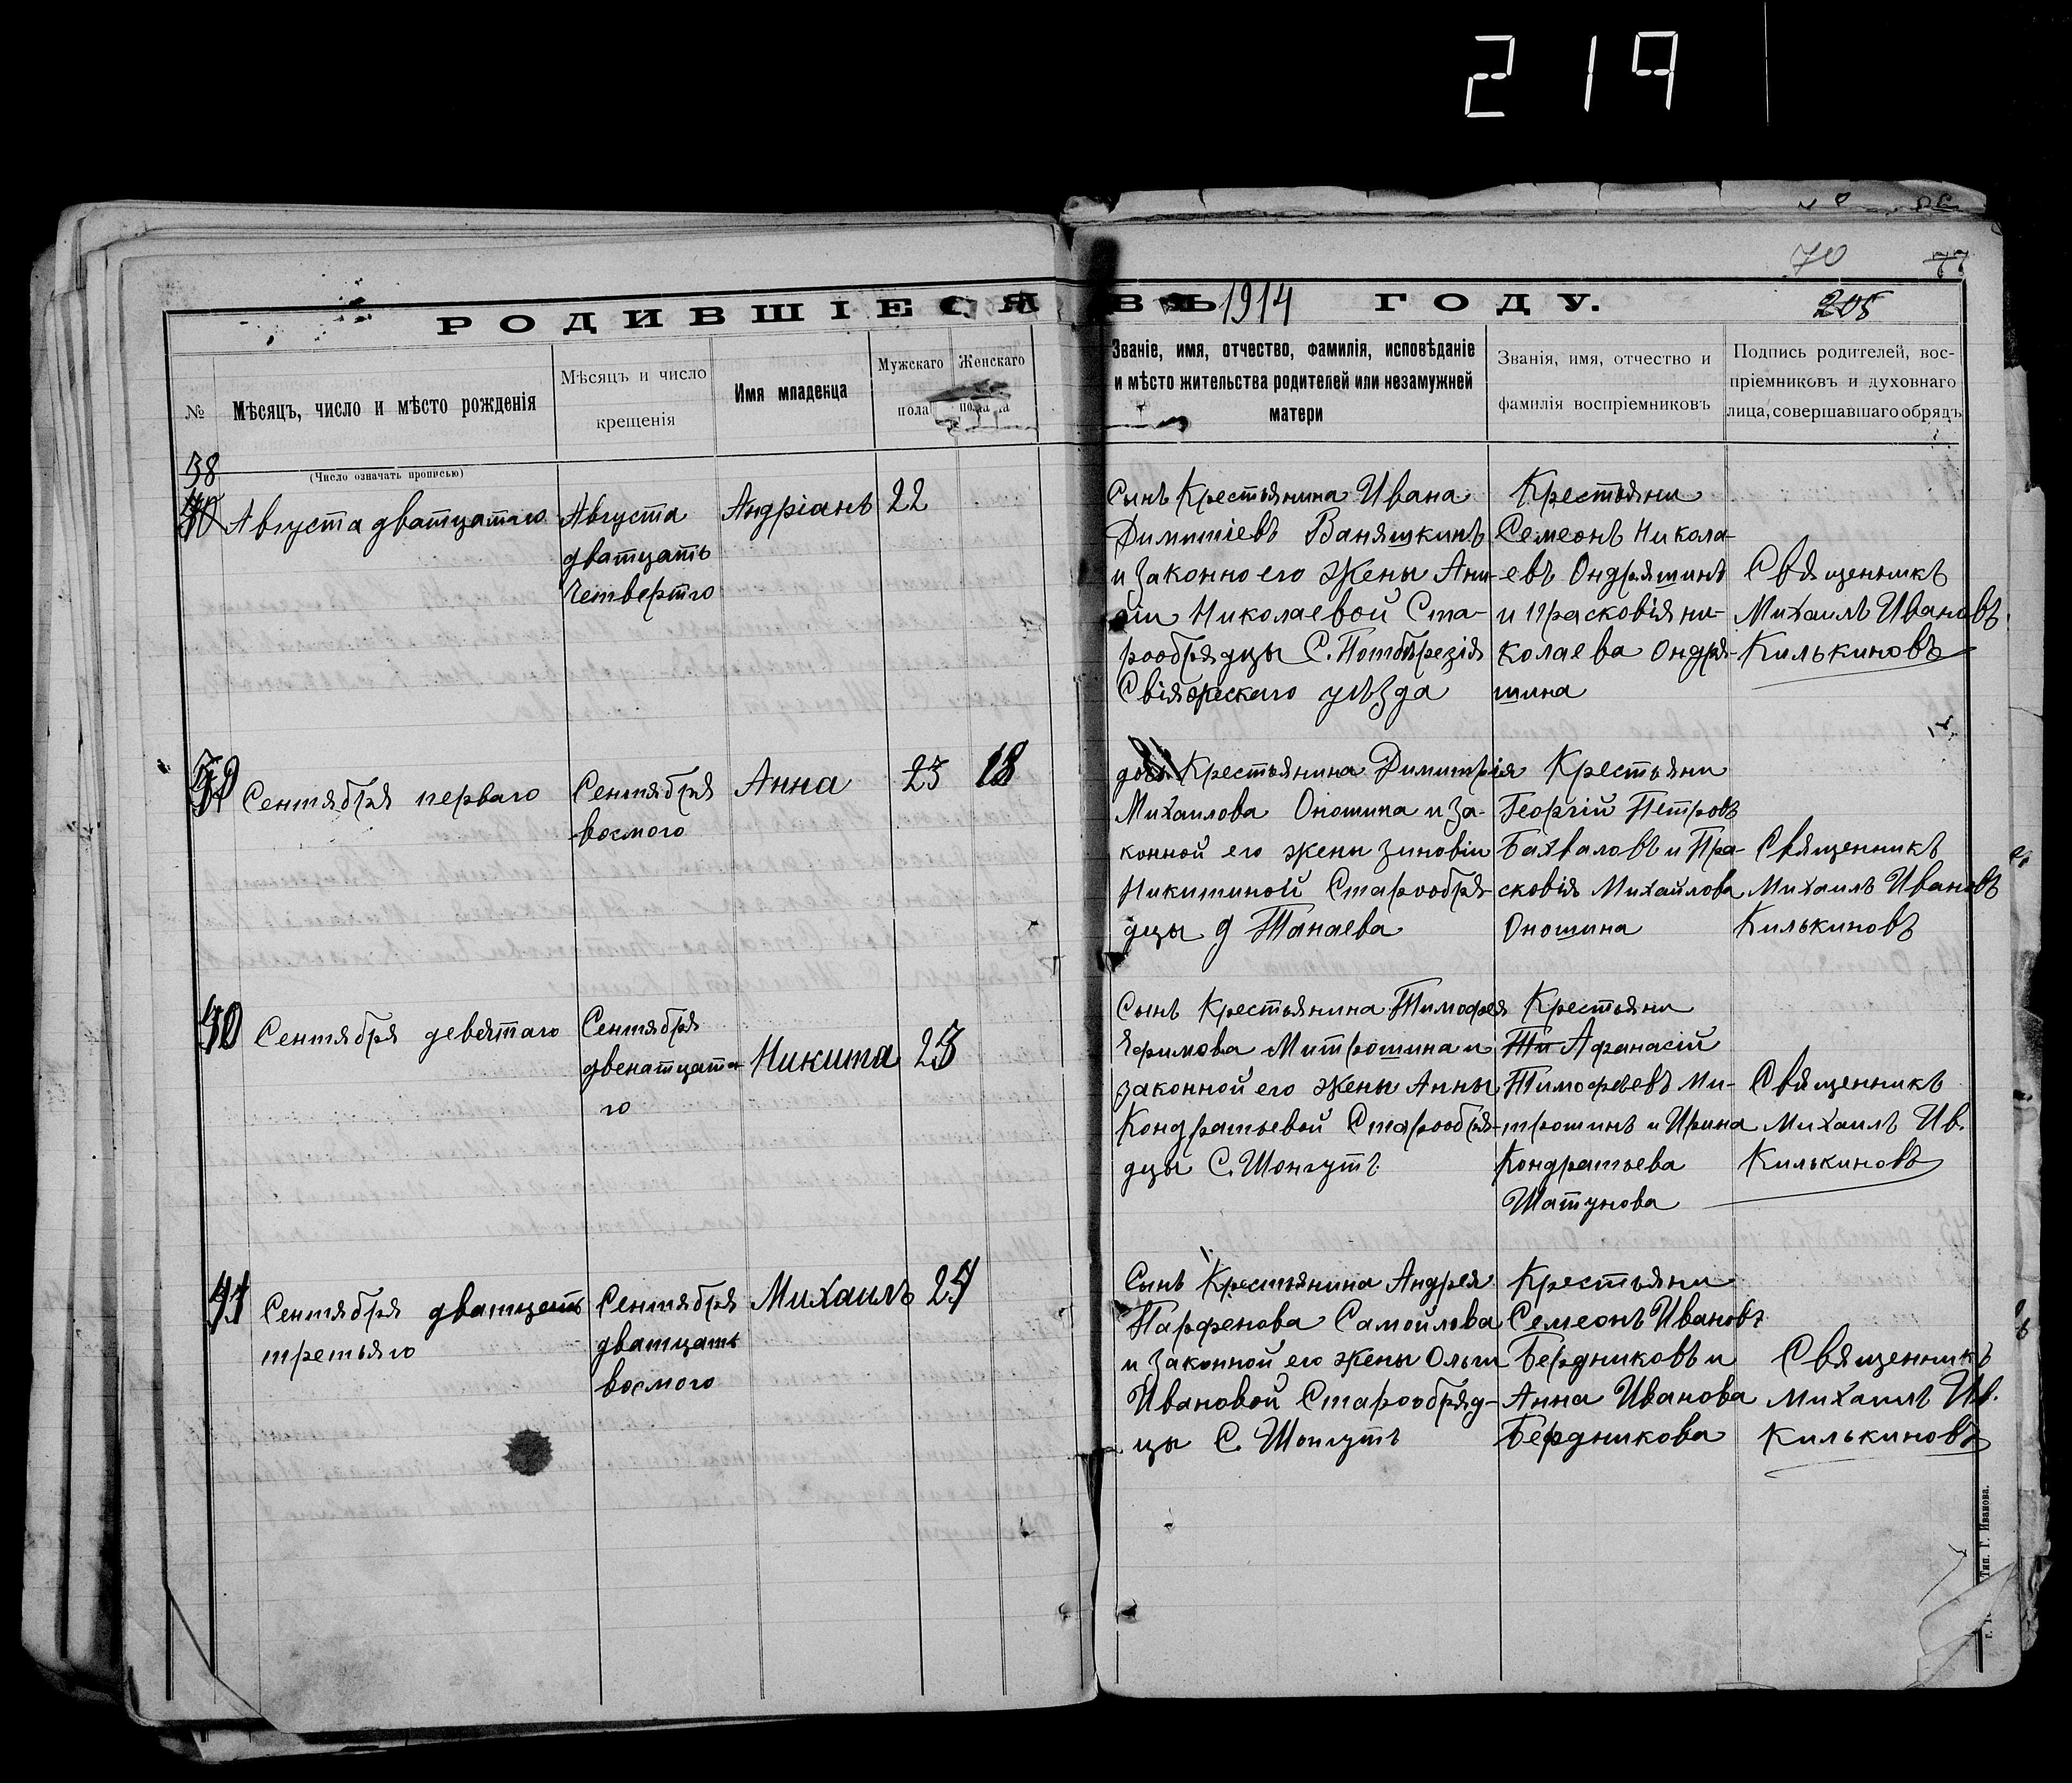 219
70
77
РОДИВШІЕСЯ ВЪ 1914 ГОДУ.
205
№
Мѣсяцъ, число и мѣсто рожденія
(Число означать прописью)
Мѣсяцъ и число
крещенія
Имя младенца
Мужскаго
пола
Женскаго
пола
Званіе, имя, отчество, фамилія, исповѣданіе
и мѣсто жительства родителей или незамужней
матери
Званія, имя, отчество и
фамилія воспріемниковъ
Подпись родителей, вос-
пріемниковъ и духовнаго
лица, совершавшаго обрядъ
38
40
Августа дватцатаго
Августа
дватцать
Четвертго
Андріанъ
22
Сынъ Крестьянина Ивана
Димитіевъ Ваняшкинъ
и Законно его Жены Ани-
сіи Николаевой Ста-
рообрядцы С.
Свіяжскаго уѣзда
Крестьяни
Семеонъ Никола-
евъ Ондряшинъ
и Прасковія ни-
колаева Ондря-
шина
Священникъ
Михаилъ Ивановъ
Килькиновъ
39
Сентября перваго
Сентября
восмого
Анна
23
18
дочь Крестьянина Димитрія
Михаилова Оношина и за-
конной его жены зиновіи
Никитиной Старообря-
дцы д Танаева
Крестьяни
Георгій Петровъ
Бахваловъ и Пра-
сковія Михайлова
Оношина
Священникъ
Михаилъ Ивановъ
Килькиновъ
40
Сентября девятаго
Сентября
двенатцата-
го
Никита
23
Сынъ Крестьянина Тимофея
Ефимова Митрошина и
законной его жены Анны
Кондратьевой Старообря-
дцы С. Шонгутъ
Крестьяни
Ти Афанасій
Тимофѣевъ Ми-
трошинъ и Ирина
Кондратьева
Шатунова
Священникъ
Михаилъ Ив.
Килькиновъ
41
Сентября дватцеть
третьяго
Сентября
дватцать
восмого
Михаилъ
24
Сынъ Крестьянина Андрея
Парфенова Самойлова
и Законной его жены Ольги
Ивановой Старообряд-
цы С. Шонгутъ
Крестьяни
Семеонъ Ивановъ
Бердниковъ и
Анна Иванова
Бердникова
Священникъ
Михаилъ Ив.
Килькиновъ
Тип. Г. Иванова.